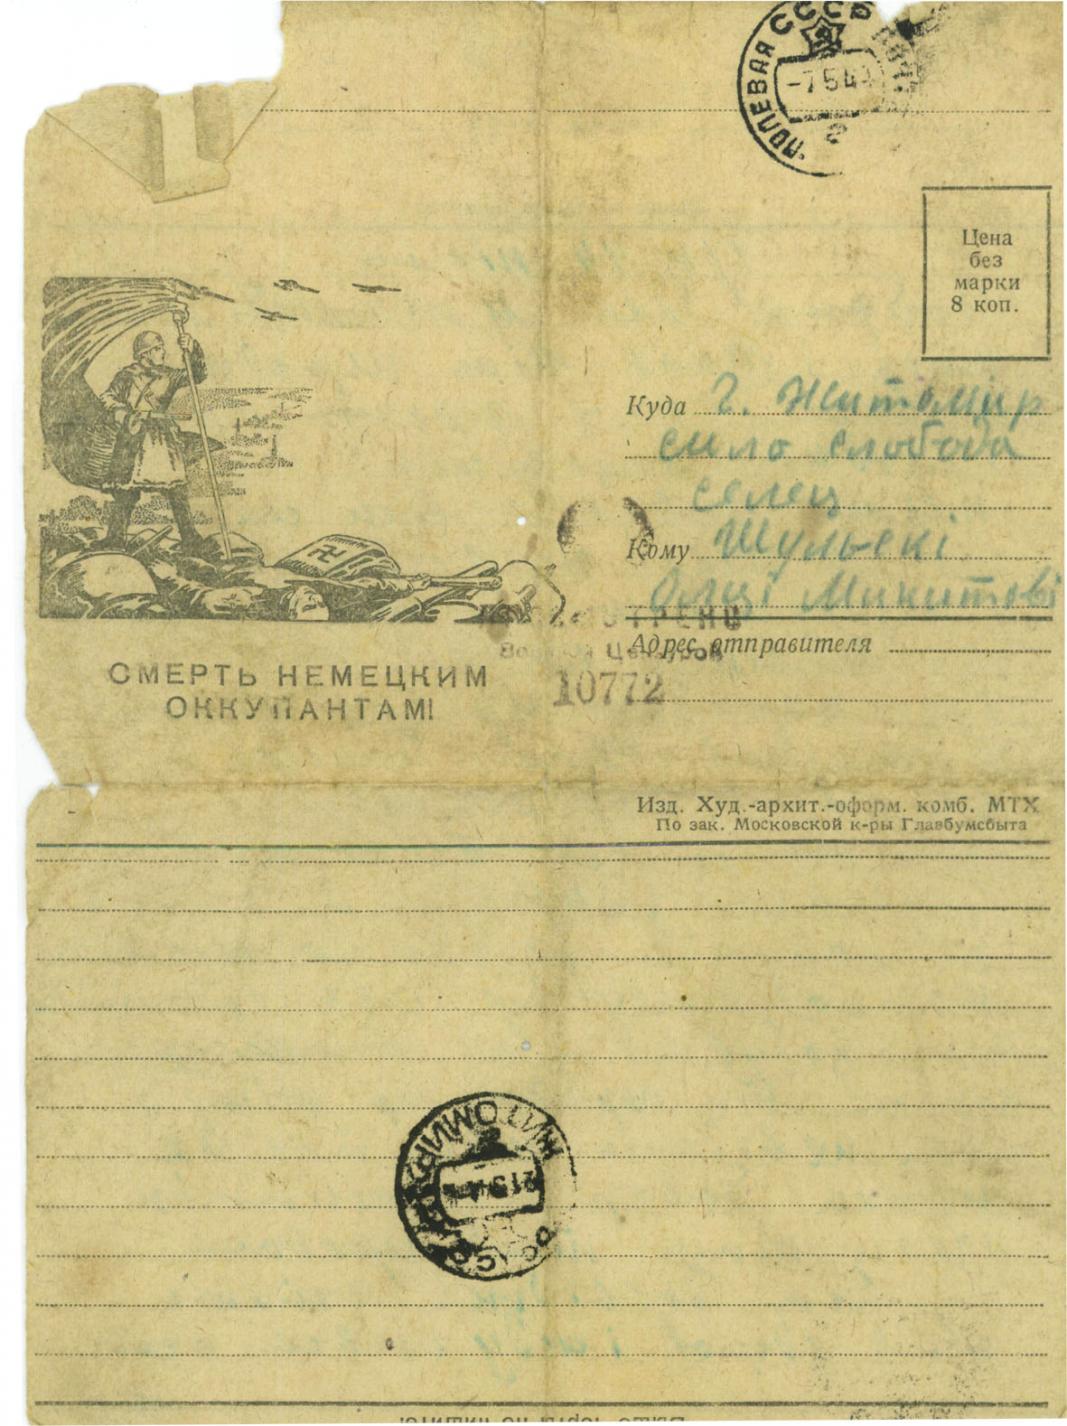 ПОЛЕВАЯ
СССР
-7 5 4
2
Цена
без
марки
8 коп.
Куда г. Житомир
сило слобода
селец
Кому Шульскі
Олці Микитові
Адрес отправителя
10772
СМЕРТЬ НЕМЕЦКИМ
ОККУПАНТАМ!
Изд. Худ.-архит.-оформ. комб. МТХ
По зак. Московской к-ры Главбумсбыта
ЖИТОМИР